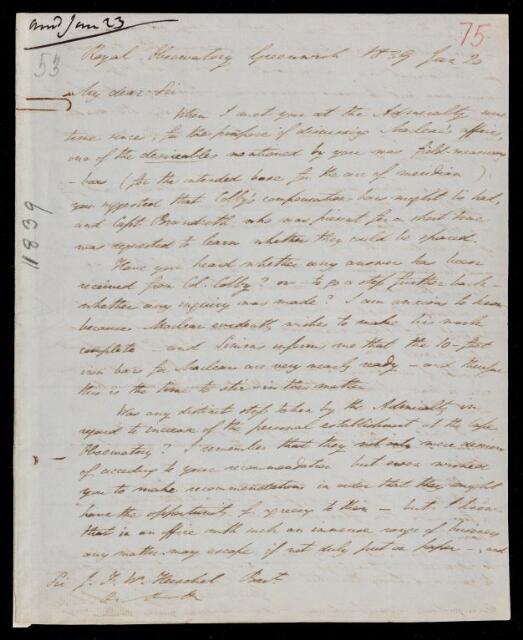 ansd Jan 23
75
53
Royal Observatory Greenwich 1839 Jan 20
My dear Sir
When I met you at the Admiralty some
time since, for the purpose of discussing Maclear's affairs,
one of the desirables mentioned by you was field measuring
-bars (for the intended base for the arc of meridian)
you suggested that Colby's compensation bars might be had,
and Capt Brandreth who was present for a short time
was requested to learn whether they could be spared.
Have you heard whether any answer has been
received from Col. Colby? or - to go a step further back -
whether any inquiry was made? I am anxious to know
because Maclear evidently wishes to make his work
complete - and Simms informs me that the 10-feet
iron bars for Maclear are very nearly ready - and therefore
this is the time to stir in the matter
Was any distinct step taken by the Admiralty in
regard to increase of the personal establishment at the Cape
Observatory? I remember that they not only were desirous
of acceding to your recommendation but even wished
you to make recommendations in order that they might
have the opportunity of agreeing to them - but I know
that in an office with such an immense range of business
any matter may escape if not duly put on paper - and
Sir J. F. W. Herschel Bart.
11839